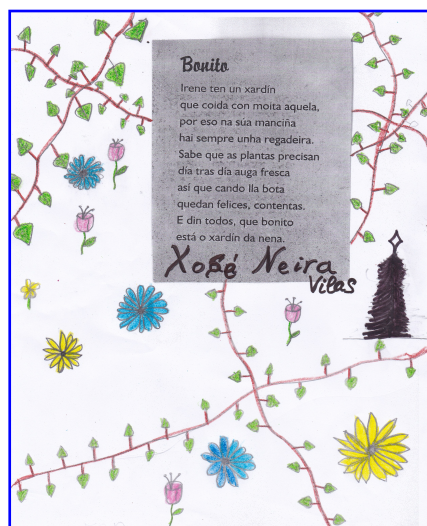 Bonito
Irene ten un xardín
que coida con moita aquela,
por eso na súa manciña
hai sempre unha regadeira.
Sabe que as plantas precisan
día tras día auga fresca
así que cando lla bota
quedan felices, contentas.
E din todos, que bonito
está o xardín da nena.
Xosé Neira
Vilas